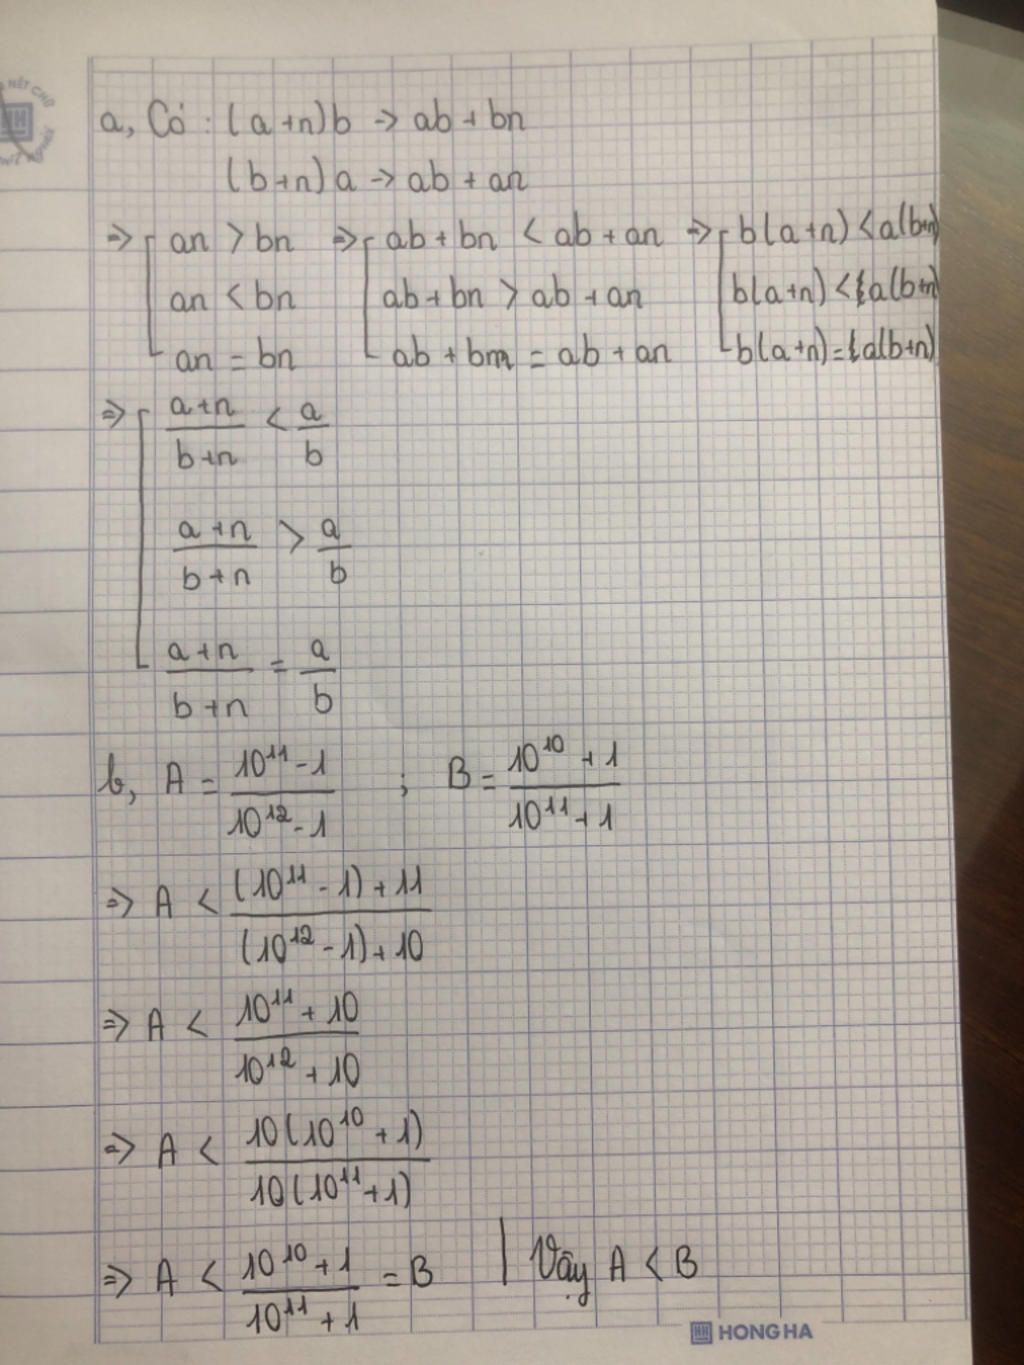 a, Có : (a+n)b → ab + bn
(b+n)a → ab + an
⇒ [ an > bn ⇒ [ ab + bn < ab + an ⇒ [ b(a+n) < a(b+n)
an < bn ab + bn > ab + an b(a+n) < a(b+n)
an = bn ab + bm = ab + an b(a+n) = a(b+n)
⇒ [ \frac{a+n}{b+n} < \frac{a}{b}
\frac{a+n}{b+n} > \frac{a}{b}
\frac{a+n}{b+n} = \frac{a}{b}
b, A = \frac{10^{11} - 1}{10^{12} - 1} ; B = \frac{10^{10} + 1}{10^{11} + 1}
⇒ A < \frac{(10^{11} - 1) + 11}{(10^{12} - 1) + 10}
⇒ A < \frac{10^{11} + 10}{10^{12} + 10}
⇒ A < \frac{10(10^{10} + 1)}{10(10^{11} + 1)}
⇒ A < \frac{10^{10} + 1}{10^{11} + 1} = B | Vậy A < B
HONG HA